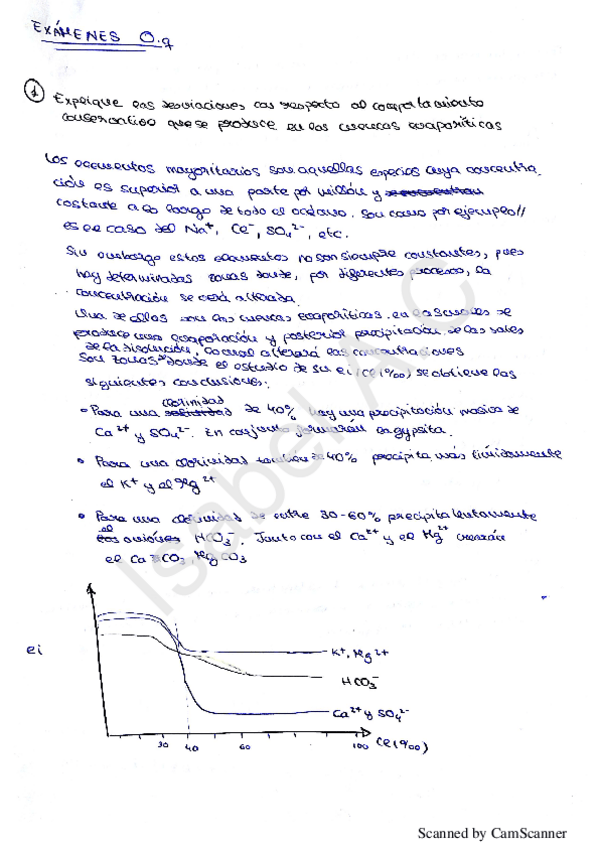 EXÁMENES O.q
1 Explique las desviaciones con respecto al comportamiento
conservativo que se produce en las cuencas evaporíticas
Los elementos mayoritarios son aquellas especies cuya concentra
ción es superior a una parte por millón y
costante a lo largo de todo el océano. Son como por ejemplo//
es el caso del Na+, Cl-, SO4 2-, etc.
Sin embargo estos elementos no son siempre constantes, pues
hay determinadas zonas donde, por diferentes procesos, la
concentración se verá alterada.
Una de ellas son las cuencas evaporíticas. en las cuales se
produce una evaporación y posterior precipitación de las sales
de la disolución, lo cual alterará las concentraciones
Son zonas donde el estudio de su ei/Cl(‰) se obtiene las
siguientes conclusiones:
• Para una clorinidad de 40% hay una precipitación masiva de
Ca2+ y SO4 2-. En conjunto formarán la gypsita.
• Para una clorinidad también de 40% precipita más tímidamente
el K+ y el Mg2+
• Para una clorinidad de entre 30-60% precipita lentamente
el HCO3-. Junto con el Ca2+ y el Mg2+ crearán
el CaCO3, MgCO3
ei
K+, Mg2+
HCO3-
Ca2+ y SO4 2-
30 40 60 100 Cl(‰)
Isabel A.C
Scanned by CamScanner